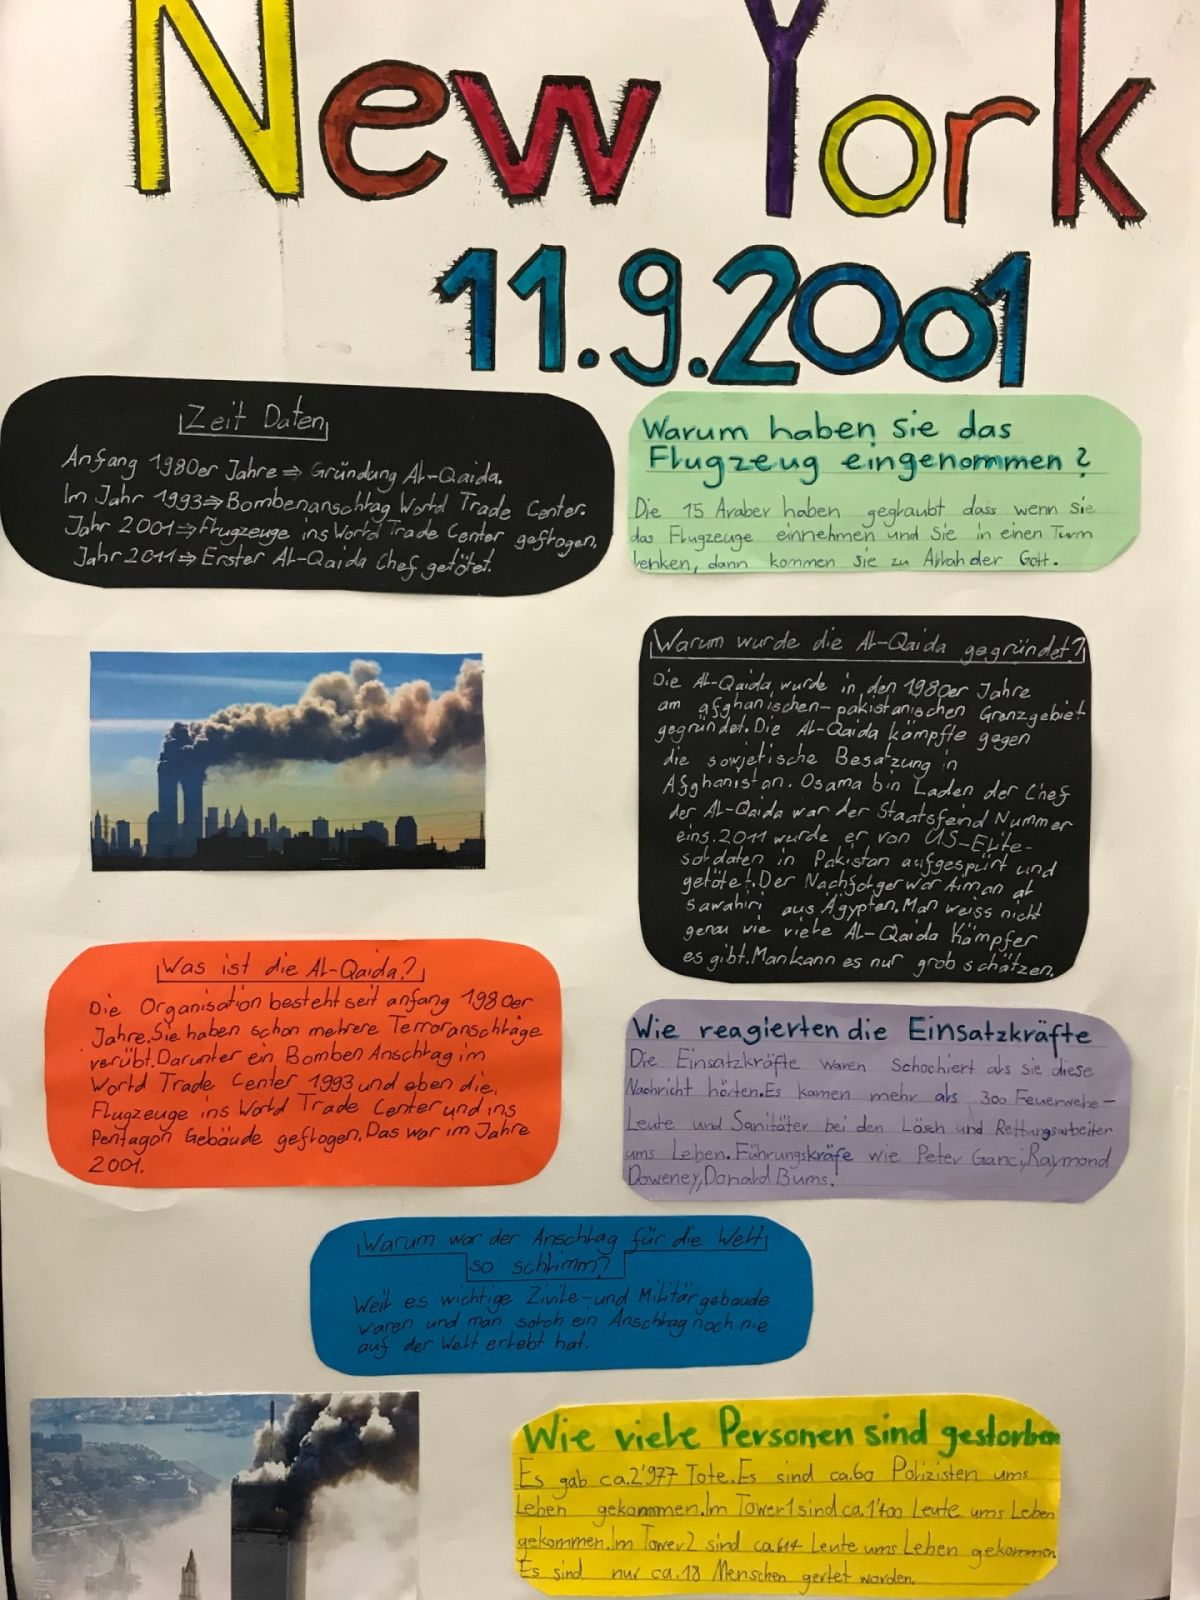 New York
11.9.2001
Zeit Daten
Anfang 1980er Jahre ⇒ Gründung Al-Qaida.
Im Jahr 1993 ⇒ Bombenanschlag World Trade Center.
Jahr 2001 ⇒ Flugzeuge ins World Trade Center geflogen.
Jahr 2011 ⇒ Erster Al-Qaida Chef getötet.
Warum haben sie das
Flugzeug eingenommen?
Die 15 Araber haben geglaubt dass wenn sie
das Flugzeuge einnehmen und sie in einen Turm
lenken, dann kommen sie zu Allah der Gott.
Warum wurde die Al-Qaida gegründet?
Die Al-Qaida wurde in den 1980er Jahre
am afghanischen-pakistanischen Grenzgebiet
gegründet. Die Al-Qaida kämpfte gegen
die sowjetische Besatzung in
Afghanistan. Osama bin Laden der Chef
der Al-Qaida war der Staatsfeind Nummer
eins. 2011 wurde er von US-Elite-
soldaten in Pakistan aufgespürt und
getötet. Der Nachfolger war Aiman al
Sawahiri aus Ägypten. Man weiss nicht
genau wie viele Al-Qaida Kämpfer
es gibt. Man kann es nur grob schätzen.
Was ist die Al-Qaida?
Die Organisation besteht seit anfang 1980er
Jahre. Sie haben schon mehrere Terroranschläge
verübt. Darunter ein Bomben Anschlag im
World Trade Center 1993 und eben die
Flugzeuge ins World Trade Center und ins
Pentagon Gebäude geflogen. Das war im Jahre
2001.
Wie reagierten die Einsatzkräfte
Die Einsatzkräfte waren Schockiert als sie diese
Nachricht hörten. Es kamen mehr als 300 Feuerwehr-
Leute und Sanitäter bei den Lösch und Rettungsarbeiter
ums Leben. Führungskräfe wie Peter Ganci, Raymond
Doweney, Donald Burns.
Warum war der Anschlag für die Welt
so schlimm?
Weil es wichtige Zivile- und Militärgebaude
waren und man solch ein Anschlag noch nie
auf der Welt erlebt hat.
Wie viele Personen sind gestorben
Es gab ca. 2'977 Tote. Es sind ca. 60 Polizisten ums
Leben gekommen. Im Tower 1 sind ca. 1'400 Leute ums Leben
gekommen. Im Tower 2 sind ca. 614 Leute ums Leben gekommen.
Es sind nur ca. 18 Menschen gertet worden.